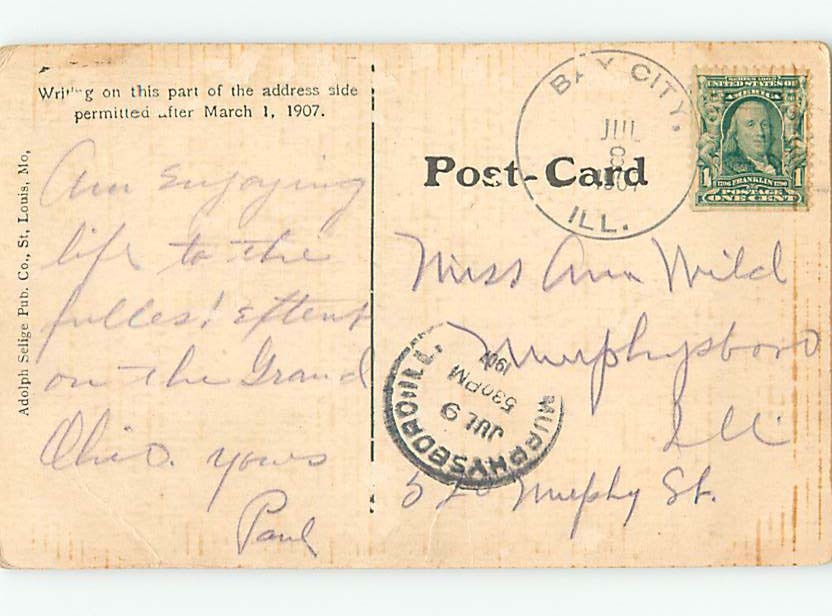 Writing on this part of the address side
permitted after March 1, 1907.
Adolph Selige Pub. Co., St, Louis, Mo,
Post-Card
BAY CITY,
JUL
8
1907
ILL.
SERIES 1902
UNITED STATES OF
AMERICA
1 1706 FRANKLIN 1790 1
POSTAGE
ONE CENT
Am Enjoying
life to the
fullest Extent
on the Grand
Ohio. yours
Paul
Miss Ann Wild
Murphysboro
Ill
520 Murphy St.
MURPHYSBORO, ILL.
JUL 9
530PM
1907